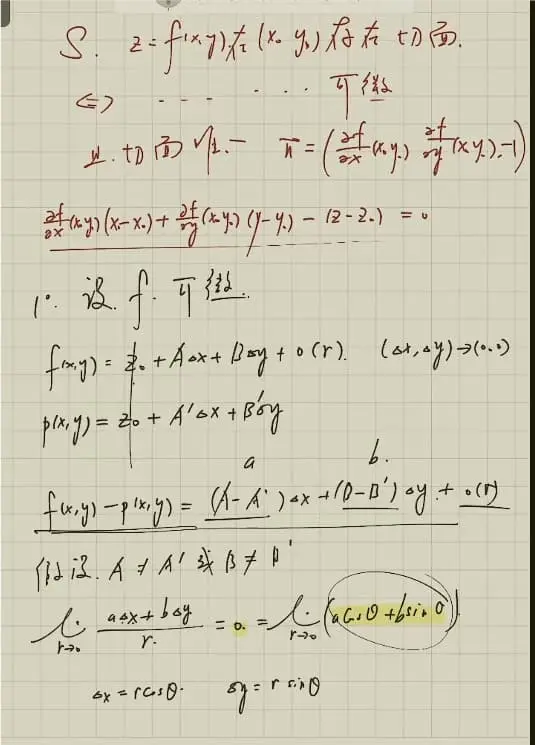 S. z=f(x,y)在(x₀ y₀)存在切面.
⇔ - - - - - - - 可微
且.切面唯一 n̄=(∂f/∂x(x₀ y₀) ∂f/∂y(x₀ y₀),-1)
∂f/∂x(x₀y₀)(x-x₀)+∂f/∂y(x₀y₀)(y-y₀)-(z-z₀)=0
1°. 设.f.可微.
f(x,y)=z₀+AΔx+BΔy+o(r). (Δx,Δy)→(0,0)
p(x,y)=z₀+A'Δx+B'Δy
a b.
f(x,y)-p(x,y)=(A-A')Δx+(B-B')Δy+o(r)
假设.A≠A'或B≠B'
lim r→0 (aΔx+bΔy)/r.=0.=lim r→0 (acosθ+bsinθ)
Δx=rcosθ. Δy=r sinθ